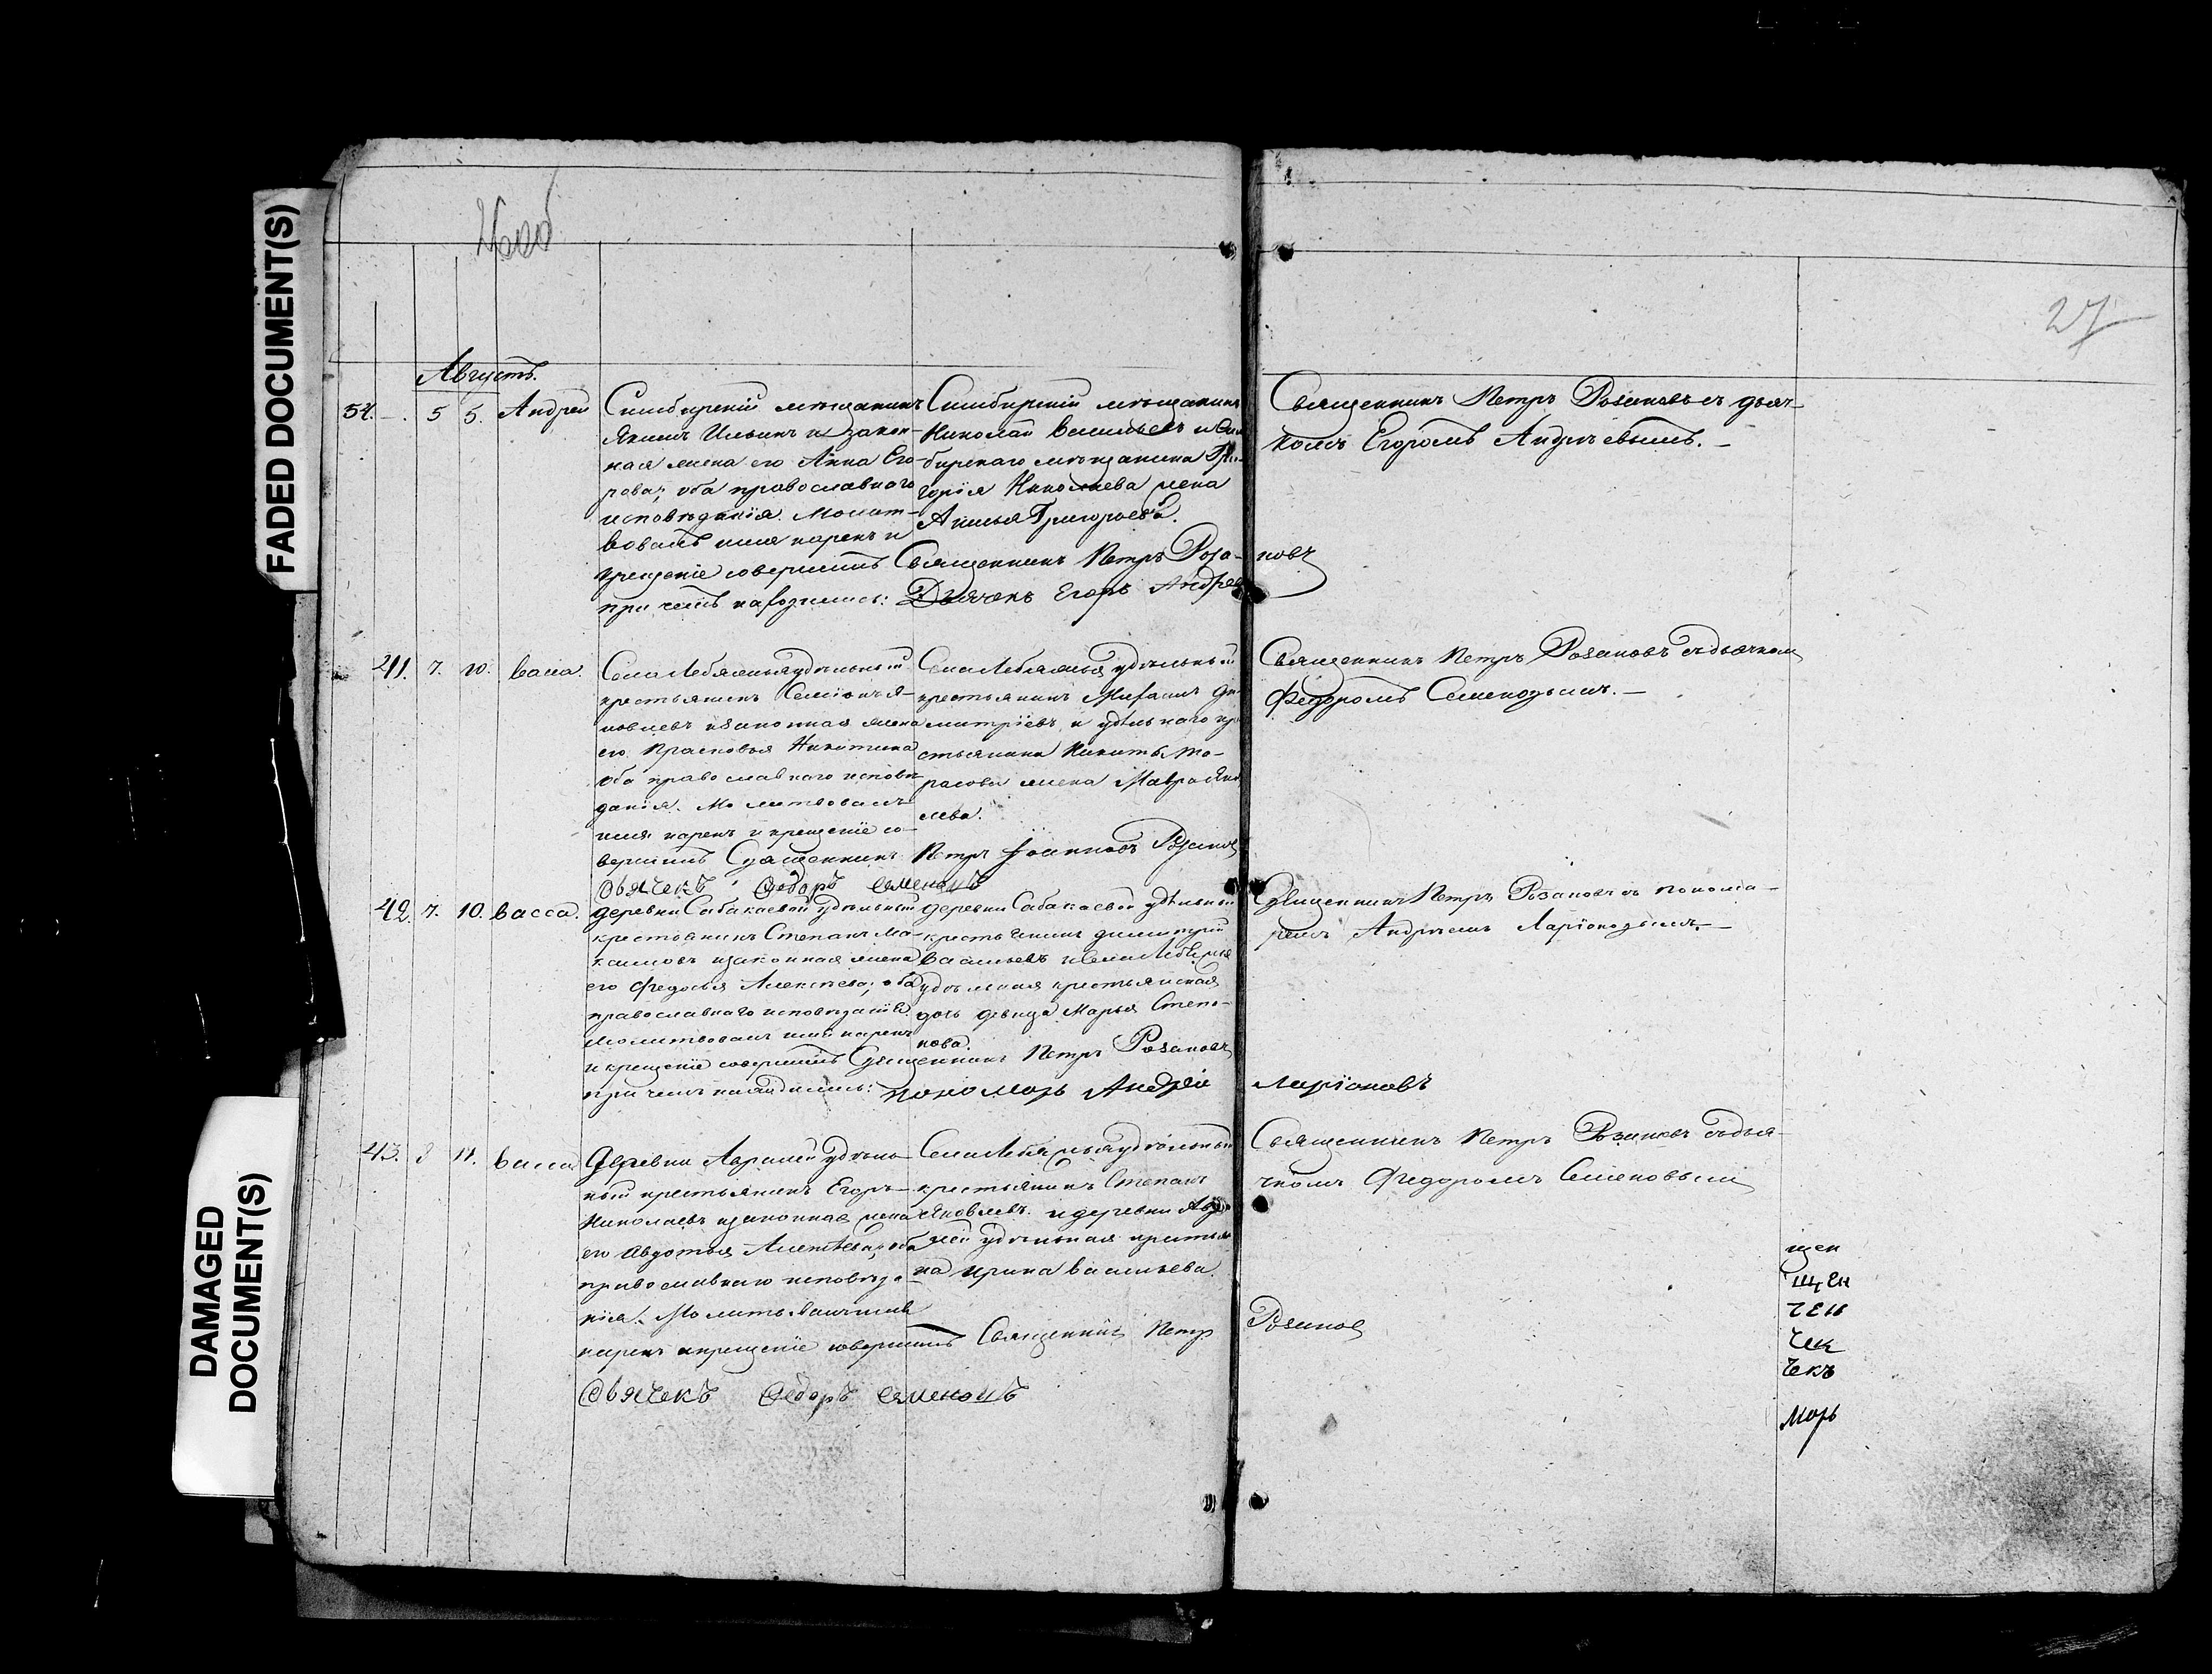 FADED DOCUMENT(S)
DAMAGED DOCUMENT(S)
26об
27
Августъ.
54. – 5 5. Андрей
Симбирскій мѣщанинъ
Якимъ Ильинъ и закон-
ная жена его Анна Его-
рова; оба православнаго
исповѣданія. Молит-
вовалъ имя нарекъ и
крещеніе совершилъ Священникъ Петръ Роза-новъ
при чемъ находились: Дьячекъ Егоръ Андрее
Симбирскій мѣщанинъ
Николай Васильевъ и Сим
бирскаго мѣщанина Гри-
горія Николаева жена
Анисья Григорьева.
Священникъ Петръ Розановъ съ дьяч-
комъ Егоромъ Андреевымъ. –
41. 7. 10. Васса.
Села Лебяжья удѣльный
крестьянинъ Семіонъ Я-
ковлевъ и законная жена
его Прасковья Никитина
оба православнаго исповѣ-
данія. Молитвовалъ
имя нарекъ и крещеніе со-
вершилъ Священникъ Петръ Іоанновъ Розановъ
Дьячекъ Федоръ Семеновъ
Села Лебяжья удѣльный
крестьянинъ Дми-
митріевъ и удѣльнаго кре
стьянина Никиты Та-
расова жена Мавра Яков
лева.
Священникъ Петръ Розановъ съ дьячкомъ
Федоромъ Семеновымъ. –
42. 7. 10. Васса.
деревни Сабакаевой удѣльный
крестьянинъ Степанъ Ма-
каимовъ и законная жена
его Федосья Алексѣева; оба
православнаго исповѣданія
Молитвовалъ имя нарекъ
и крещеніе совершилъ Священникъ Петръ Розановъ
при чемъ находились: пономарь Андрей Ларіоновъ
деревни Сабакаевой удѣльный
крестьянинъ Димитрій
Васильевъ и Села Лебяжья
удѣльная крестьянская
дочь девица Марья Степа-
нова.
Священникъ Петръ Розановъ съ понома-
ремъ Андреемъ Ларіоновымъ. –
43. 8 11. Васса
Деревни Авралей удѣль-
ный крестьянинъ Егоръ
Николаевъ и законная жена
его Авдотья Алексѣева; оба
православнаго исповѣда-
нія. Молитвовалъ имя
нарекъ и крещеніе совершилъ Священникъ Петръ Розановъ
Дьячекъ Федоръ Семеновъ
Села Лебяжья удѣльный
крестьянинъ Степанъ
Яковлевъ. и деревни Авра
лей удѣльная крестьян
ка Ирина Васильева.
Священникъ Петръ Розановъ съ дья-
чкомъ Федоромъ Семеновымъ
щен
щен
чен
чек
чекъ
марь